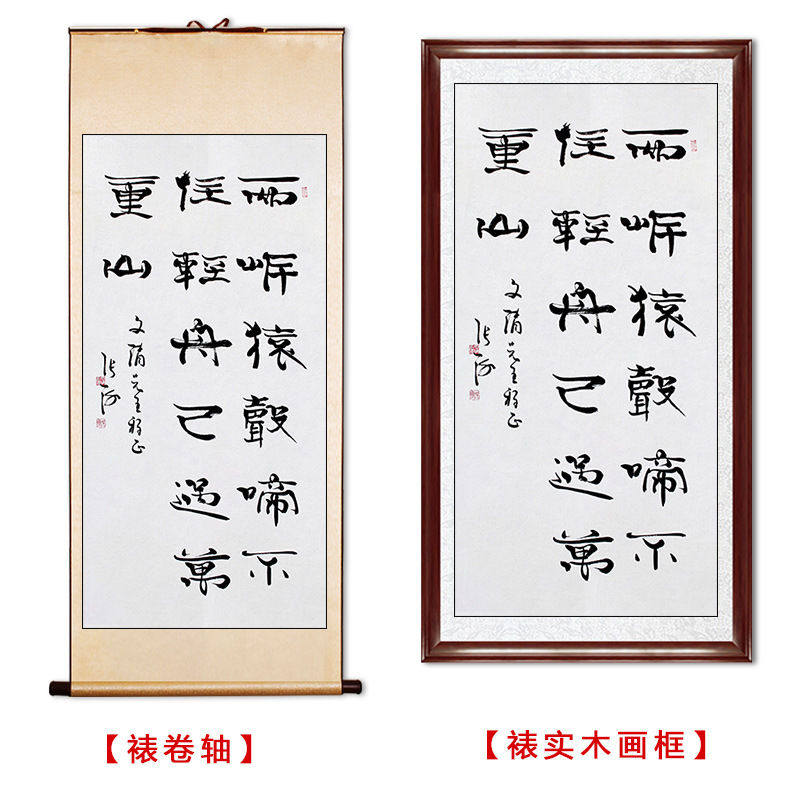 兩岸猿聲啼不
住輕舟已過萬
重山
文先生正
【裱卷轴】
兩岸猿聲啼不
住輕舟已過萬
重山
文先生正
【裱实木画框】